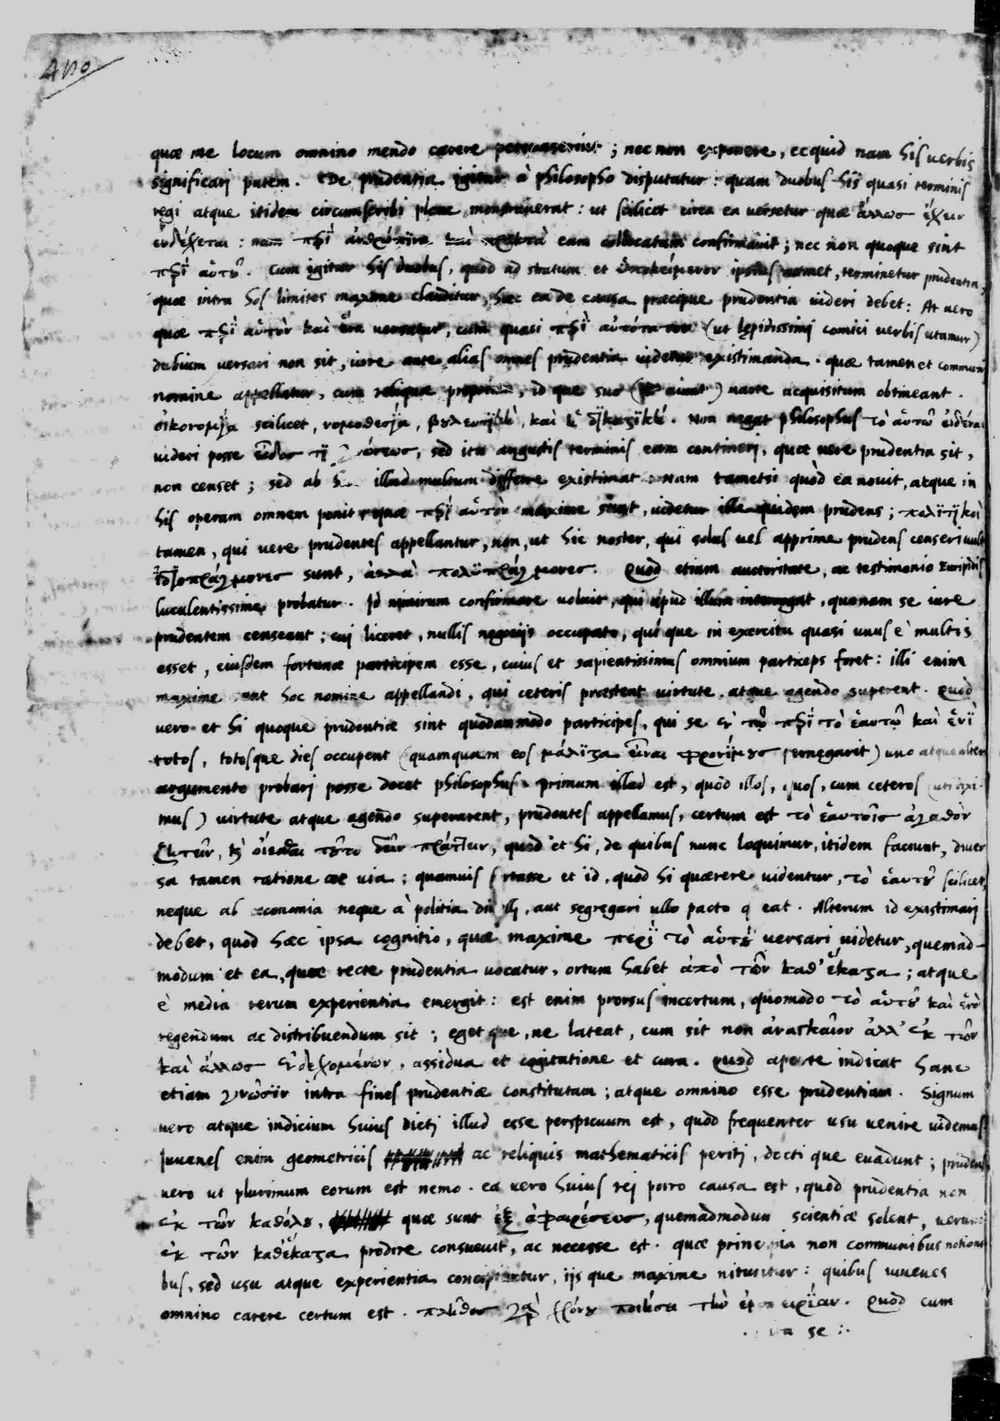 quæ me locum omnino mendo carere ; nec non exponere, ecquid nam his verbis
significari putem. De prudentia igitur à philosopho disputatur: quam duobus his quasi terminis
regi atque itidem circumscribi plane monstraverat: ut scilicet circa ea versetur quæ ἄλλως ἔχειν
ἐνδέχεται: καὶ eam collocatam confirmavit; nec non quoque sint
πρὶ αὑτȣ̃. cum igitur his duobus, quod ad stratum et ὑποκείμενον ipsius, terminetur prudentia,
quæ intra hos limites maxime clauditur, hæc ea de causa præcipue prudentia videri debet: At vero
quæ πρὶ αὑτὸν καὶ ἕνα versetur, cum quasi πρὶ (ut lepidissimi comici verbis utamur)
dubium versari non sit, iure ante alias omnes prudentia videtur existimanda. quæ tamen et communi
nomine appellatur, cum reliquæ, id que suo marte acquisitum obtineant.
οἰκονομία scilicet, νομοθεσία, βȣλευτικὴ, καὶ ἡ δικαστικὴ. Non negat philosophus τὸ αὑτῶ εἰδέναι
videri posse εἶδος, sed ita angustis terminis eam contineri, quæ vere prudentia sit,
non censet; sed ab illud multum differre existimat. nam tametsi quòd ea novit, atque in
his operam omnem ponit quæ πρὶ αὑτὸν maxime sunt, videtur ille quidem prudens; πολιτικοὶ
tamen, qui vere prudentes appellantur, non, ut hic noster, qui solus vel apprime prudens censeri vult
ἰδιοπράγμονες sunt, ἀλλὰ πολυπράγμονες. Quòd etiam auctoritate, ac testimonio Euripidis
luculentissime probatur. Id nimirum confirmare voluit, qui apud illum interrogat, quonam se iure
prudentem censeant; cui liceret, nullis negotijs occupato, qui que in exercitu quasi unus è multis
esset, eiusdem fortunæ participem esse, cuius et sapientissimus omnium particeps foret: illi enim
maxime sunt hoc nomine appellandi, qui ceteris præstent virtute, atque agendo superent. Quòd
vero et hi quoque prudentiæ sint quodammodo participes, qui se ἐν τῶ πρὶ τὸ ἑαυτῶ καὶ ἑνὶ
totos, totosque dies occupent (quamquam eos μάλιστα εἶναι φρονίμȣς pernegarit) uno atque altero
argumento probari posse docet philosophus. primum illud est, quòd illos, quos, cum ceteros (uti dixi-
mus) virtute atque agendo superarent, prudentes appellamus, certum est τὸ ἑαυτοῖς ἀγαθὸν
ζητεῖν, καὶ οἴεσθαι τȣ̃το δεῖν πράττειν, quod et hi, de quibus nunc loquimur, itidem faciunt, diver
sa tamen ratione ac via; quamvis fortasse et id, quod hi quærere videntur, τὸ ἑαυτȣ̃ scilicet,
neque ab œconomia neque à politia divelli, aut segregari ullo pacto queat. Alterum id existimari
debet, quod hæc ipsa cognitio, quæ maxime περὶ τὸ αὑτȣ̃ versari videtur, quemad-
modum et ea, quæ recte prudentia vocatur, ortum habet ἀπὸ τῶν καθ' ἕκαστα; atque
è media rerum experientia emergit: est enim prorsus incertum, quomodo τὸ αὑτȣ̃ καὶ ἑνὸς
regendum ac distribuendum sit; eget que, ne lateat, cum sit non ἀναγκαῖον ἀλλ' ἐκ τῶν
καὶ ἄλλως ἐνδεχομένων, assidua et cogitatione et cura. Quod aperte indicat hanc
etiam γνῶσιν intra fines prudentiæ constitutam; atque omnino esse prudentiam. Signum
vero atque indicium huius dicti illud esse perspicuum est, quòd frequenter usu venire videmus.
Iuvenes enim geometricis ac reliquis mathematicis periti, docti que evadunt; prudens
vero ut plurimum eorum est nemo. ea vero huius rei porro causa est, quòd prudentia non
ἐκ τῶν καθόλȣ, quæ sunt ἐξ ἀφαιρέσεως, quemadmodum scientiæ solent, verum
ἐκ τῶν καθέκαστα prodire consuevit, ac necesse est. quæ principia non communibus notioni
bus, sed usu atque experientia concipiuntur, ijs que maxime nituntur: quibus iuvenes
omnino carere certum est. πλῆθος γὰρ χρόνȣ ποιήσει τὴν ἐμπειρίαν. Quòd cum
se :.